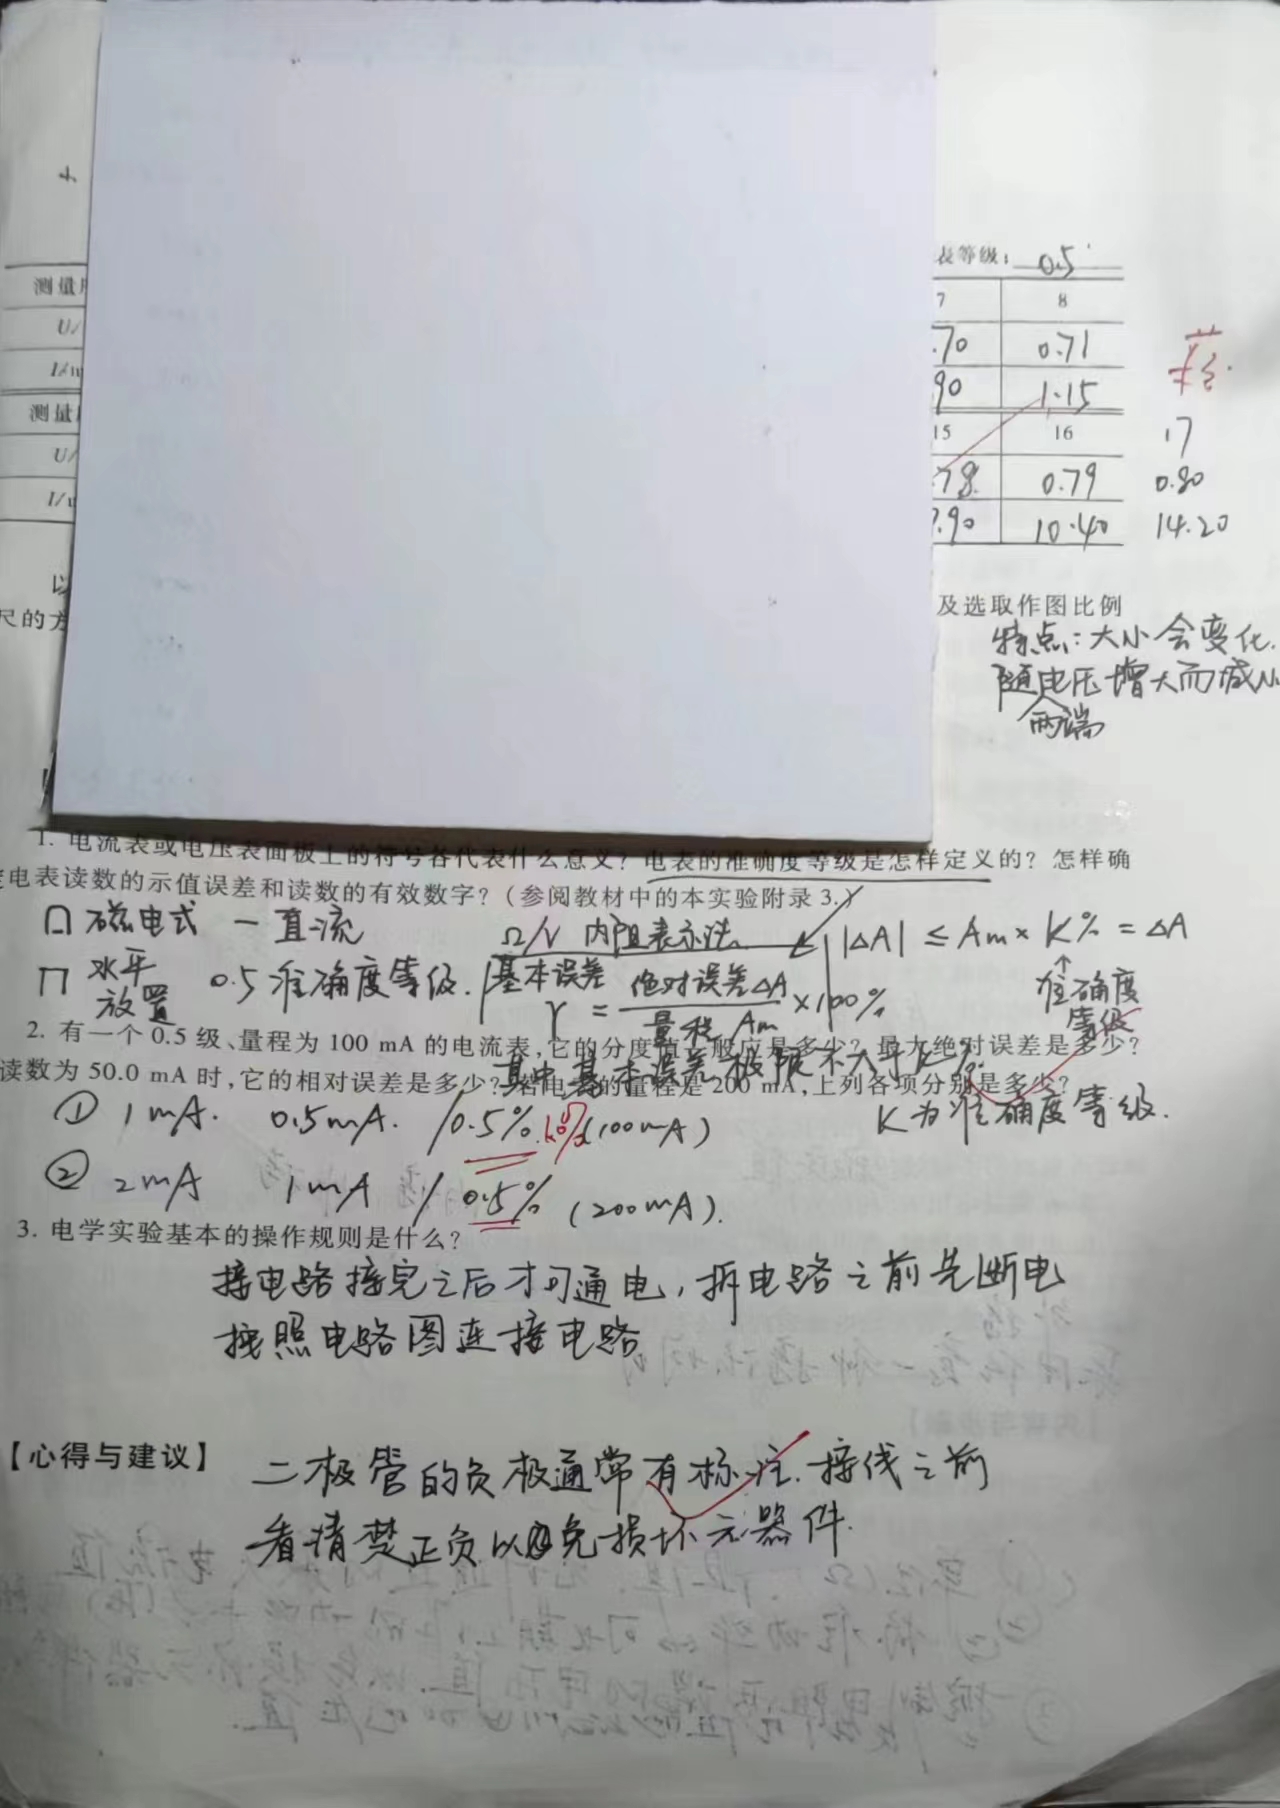 表等级: 0.5
测量
7 8
U/
.70 0.71
I/m
90 1.15
测量
15 16 17
U/
.78 0.79 0.80
I/
.90 10.40 14.20
以
及选取作图比例
尺的方
特点:大小会变化.
随电压增大而减小
两端
1. 电流表或电压表面板上的符号各代表什么意义? 电表的准确度等级是怎样定义的? 怎样确
定电表读数的示值误差和读数的有效数字?(参阅教材中的本实验附录 3.)
磁电式 — 直流 Ω/V 内阻表示法 |ΔA| ≤ Am × K% = ΔA
水平放置 0.5 准确度等级. 基本误差 γ = 绝对误差ΔA / 量程 Am ×100% 准确度等级
2. 有一个 0.5 级、量程为 100 mA 的电流表,它的分度值一般应是多少? 最大绝对误差是多少?
其中基本误差极限不大于K%.
读数为 50.0 mA 时,它的相对误差是多少? 若电表的量程是 200 mA,上列各项分别是多少?
K为准确度等级.
① 1mA. 0.5mA. /0.5% (100mA)
② 2mA 1mA / 0.5% (200mA).
3. 电学实验基本的操作规则是什么?
接电路接完之后才可通电,拆电路之前先断电
按照电路图连接电路
【心得与建议】 二极管的负极通常有标注.接线之前
看清楚正负以免损坏元器件.